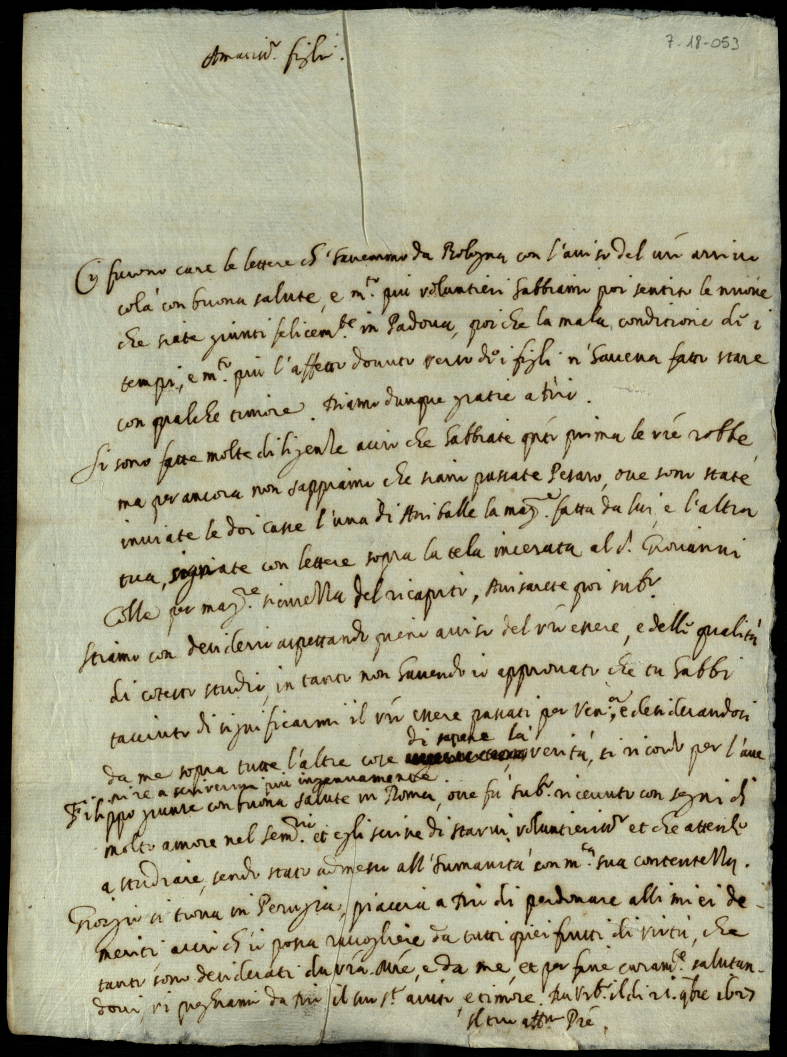 7-18-053
Amatiss.i figli.
Ci furono care le lettere ch'havemmo da Bologna con l'aviso del vr̃o arrivo
colà con buona salute, e m.to più voluntieri habbiamo poi sentito le nuove
che siate giunti felicem.te in Padova, poiche la mala conditione di i
tempi, e m.to più l'affetto dovuto verso di i figli n'haveva fatto stare
con qualche timore. Diamo dunque gratie a Dio.
Si sono fatte molte diligenze acciò che habbiate q.to prima le vr̃e robbe,
ma per ancora non sappiamo che siano passate Pesaro, ove sono state
inviate le doi casse l'una di la mag.re fatta da lui, e l'altra
tua, signate con lettere sopra la tela incerata al S. Giovanni
Colle per mag.re sicurezza del ricapito, Avisarete poi sub.o
Stiamo con desiderio aspettando pieno aviso del vr̃o essere, e delle qualità
di cotesto studio, in tanto non havendo io approvato che tu habbi
tacciuto di significarmi il vr̃o essere passati per Ven.a, e desiderandosi
da me sopra tutte l'altre cose di sapere la verità, ti ricordo per l'ave
nire a scrivermi più ingenuamente.
Filippo giunse con buona salute in Roma, ove fu sub.o ricevuto con segni di
molto amore nel Sem.rio et egli scrive di starvi voluntieriss.o et che attende
a studiare, sendo stato admesso all'humanità con m.ta sua contentezza.
Giorgio si trova in Perugia, piaccia a Dio di perdonare alli miei de-
meriti acciò ch'io possa raccogliere da tutti quei frutti di virtù, che
tanto sono desiderati da vr̃a Mr̃e, e da me, et per fine caram.te salutan-
dovi, vi preghiamo da Dio il suo s.to aiuto, e timore. Di Urb.o il di 21. 9bre 1627
Il tuo aff.mo Pr̃e.